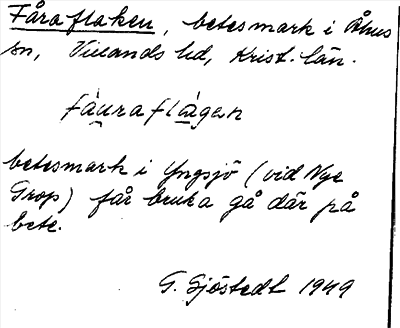 Fåraflaken, betesmark i Åhus
sn, Villands hd, Krist. län.
fàu̠raflà̠gen
betesmark i Yngsjö (vid Nye
Grop) får bruka gå där på
bete.
G. Sjöstedt 1949